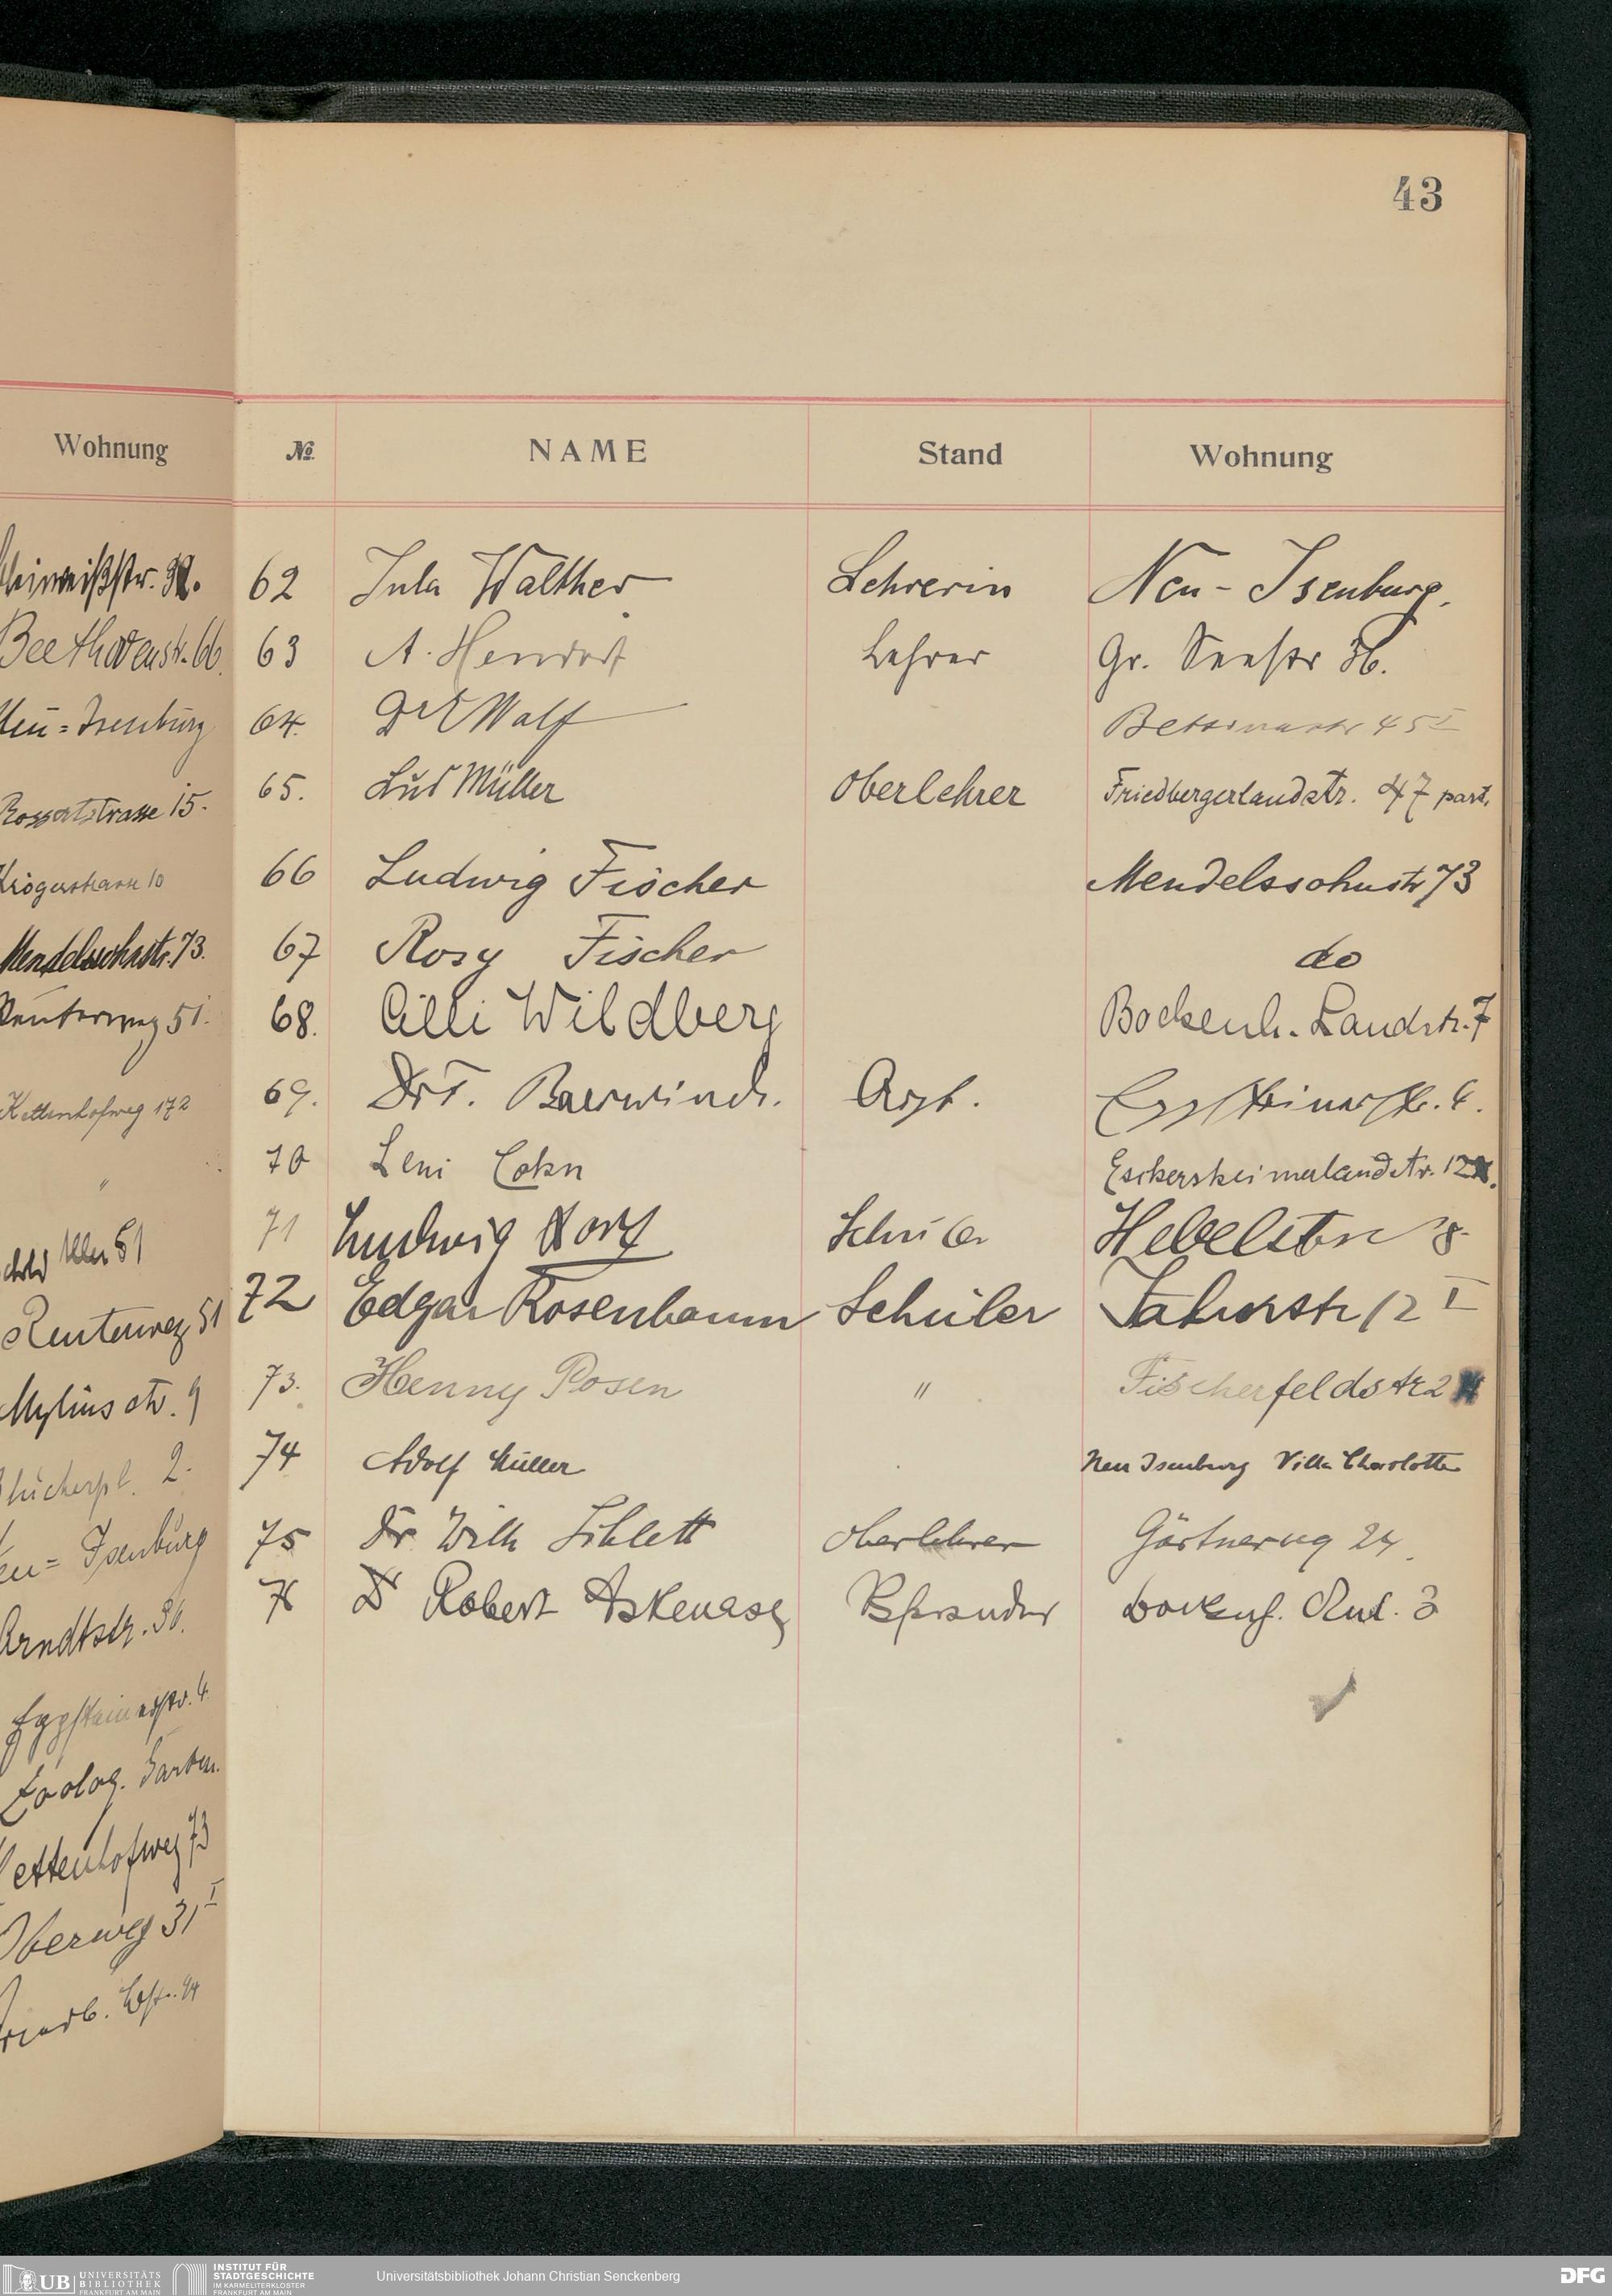 43
Wohnung
Beethovenstr. 66.
Neu=Isenburg
Rossertstrasse 15.
Krögerstrasse 10
Mendelssohnstr. 73.
Reuterweg 51.
Kettenhofweg 172
"
51
Reuterweg 51
Myliusstr. 9
2.
Isenburg
Arndtstr. 36.
Eppsteinerstr. 4.
Zoolog. Garten.
Kettenhofweg 73
Oberweg 31 I
Friedb. Ldstr. 44
№ NAME Stand Wohnung
62 Jula Walther Lehrerin Neu-Isenburg.
63 A. Hendorf Lehrer Gr. Seestr 36.
64. Dr E Wolf Bettinastr 45 I
65. Lud Müller Oberlehrer Friedbergerlandstr. 47 part.
66 Ludwig Fischer Mendelssohnstr 73
67 Rosy Fischer do
68. Cilli Wildberg Bockenh. Landstr. 7
69. Dr F. Baerwind. Arzt. Eppsteinerstr. 4.
70 Leni Cohn Eschersheimerlandstr. 12
71 Ludwig Dorf Schüler Hebelstr 8.
72 Edgar Rosenbaum Schüler Jahnstr 12 I
73. Henny Rosen " Fischerfeldstr 2
74 Adolf Müller Neu Isenburg Villa Charlotte
75 Dr Wilh Oberlehrer Gärtnerweg 24.
76 Dr Robert Askenasy Bockenh. Anl. 3
UB UNIVERSITÄTS
BIBLIOTHEK
FRANKFURT AM MAIN
INSTITUT FÜR
STADTGESCHICHTE
IM KARMELITERKLOSTER
FRANKFURT AM MAIN
Universitätsbibliothek Johann Christian Senckenberg
DFG